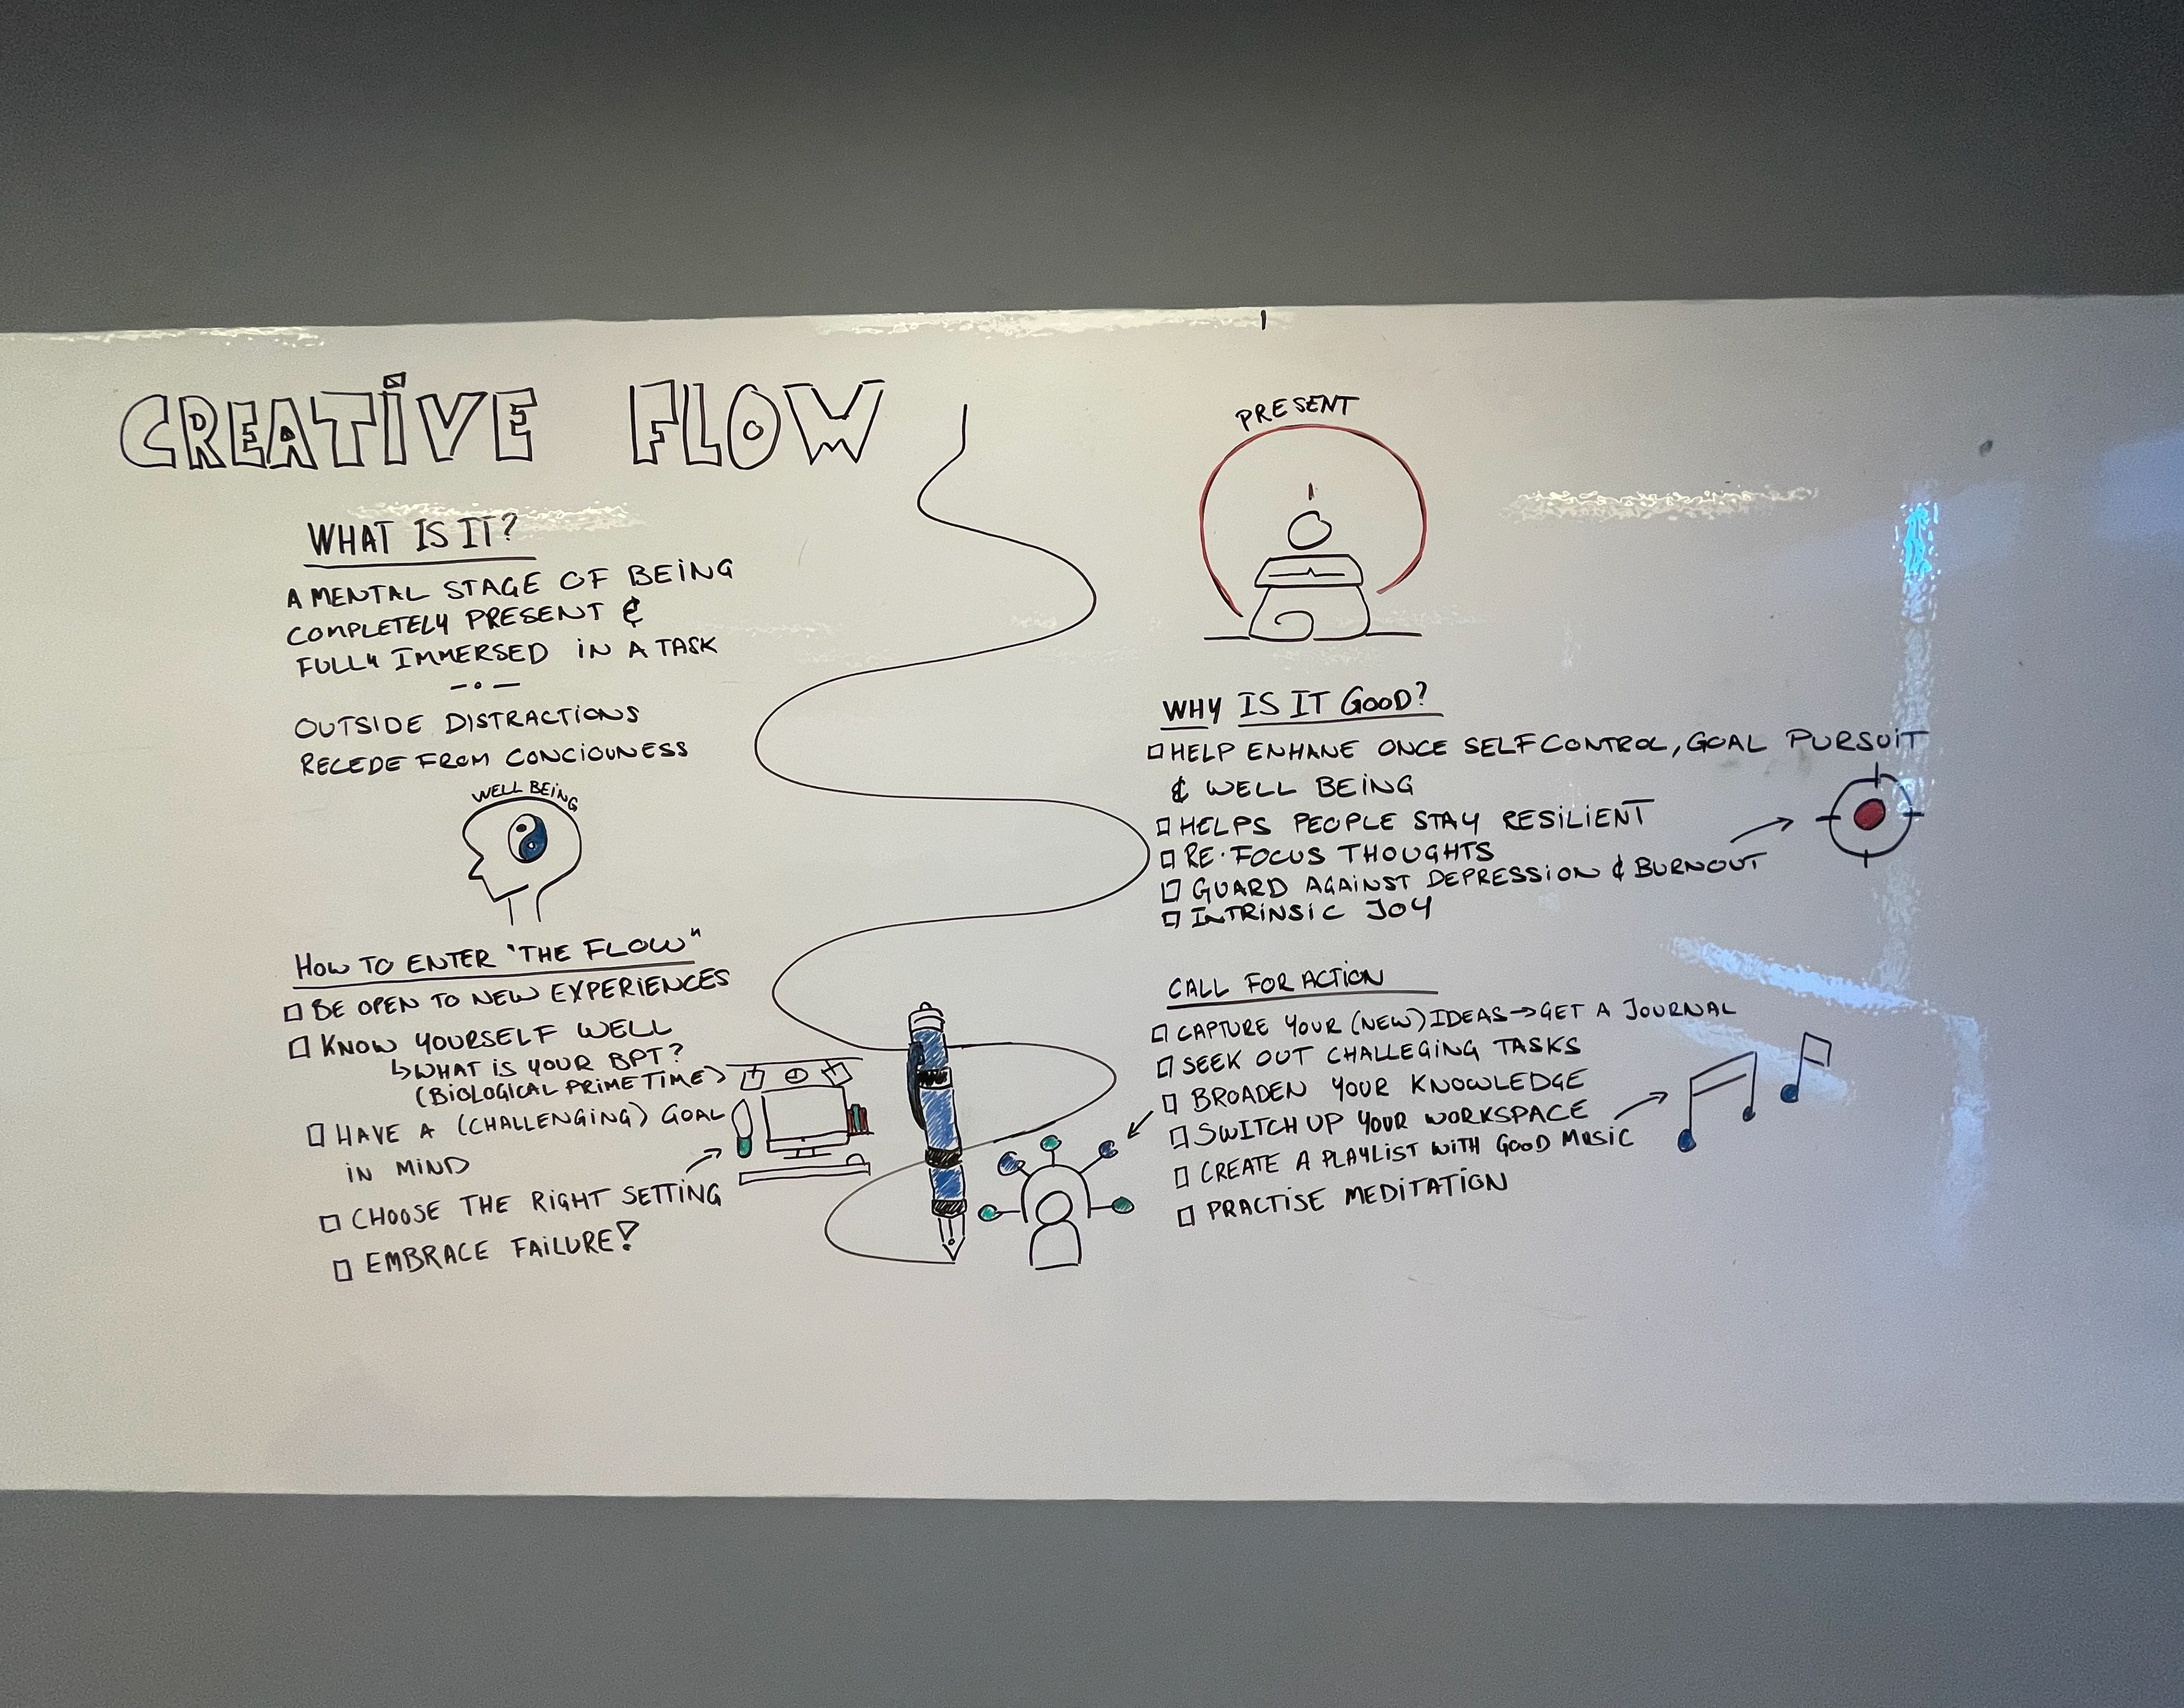 CREATIVE FLOW
WHAT IS IT?
A MENTAL STAGE OF BEING
COMPLETELY PRESENT &
FULLY IMMERSED IN A TASK
OUTSIDE DISTRACTIONS
RECEDE FROM CONCIOUNESS
WELL BEING
HOW TO ENTER "THE FLOW"
BE OPEN TO NEW EXPERIENCES
KNOW YOURSELF WELL
↳ WHAT IS YOUR BPT?
(BIOLOGICAL PRIME TIME)
HAVE A (CHALLENGING) GOAL
IN MIND
CHOOSE THE RIGHT SETTING
EMBRACE FAILURE!
PRESENT
WHY IS IT GOOD?
HELP ENHANE ONCE SELFCONTROL, GOAL PURSUIT
& WELL BEING
HELPS PEOPLE STAY RESILIENT
RE·FOCUS THOUGHTS
GUARD AGAINST DEPRESSION & BURNOUT
INTRINSIC JOY
CALL FOR ACTION
CAPTURE YOUR (NEW) IDEAS → GET A JOURNAL
SEEK OUT CHALLEGING TASKS
BROADEN YOUR KNOWLEDGE
SWITCH UP YOUR WORKSPACE
CREATE A PLAYLIST WITH GOOD MUSIC
PRACTISE MEDITATION